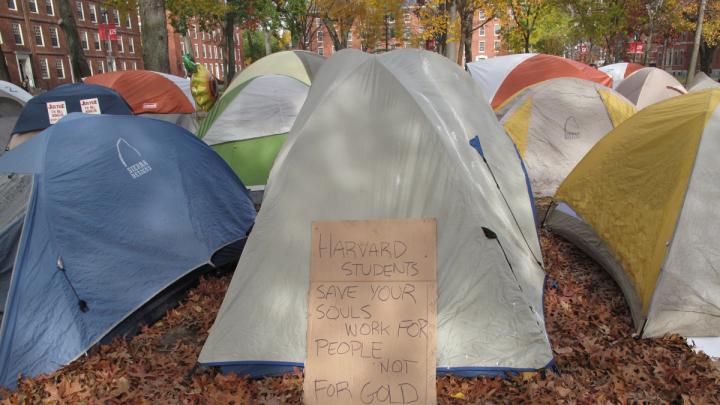 HARVARD
STUDENTS
SAVE YOUR
SOULS
WORK FOR
PEOPLE
NOT
FOR GOLD
SIERRA
DESIGNS